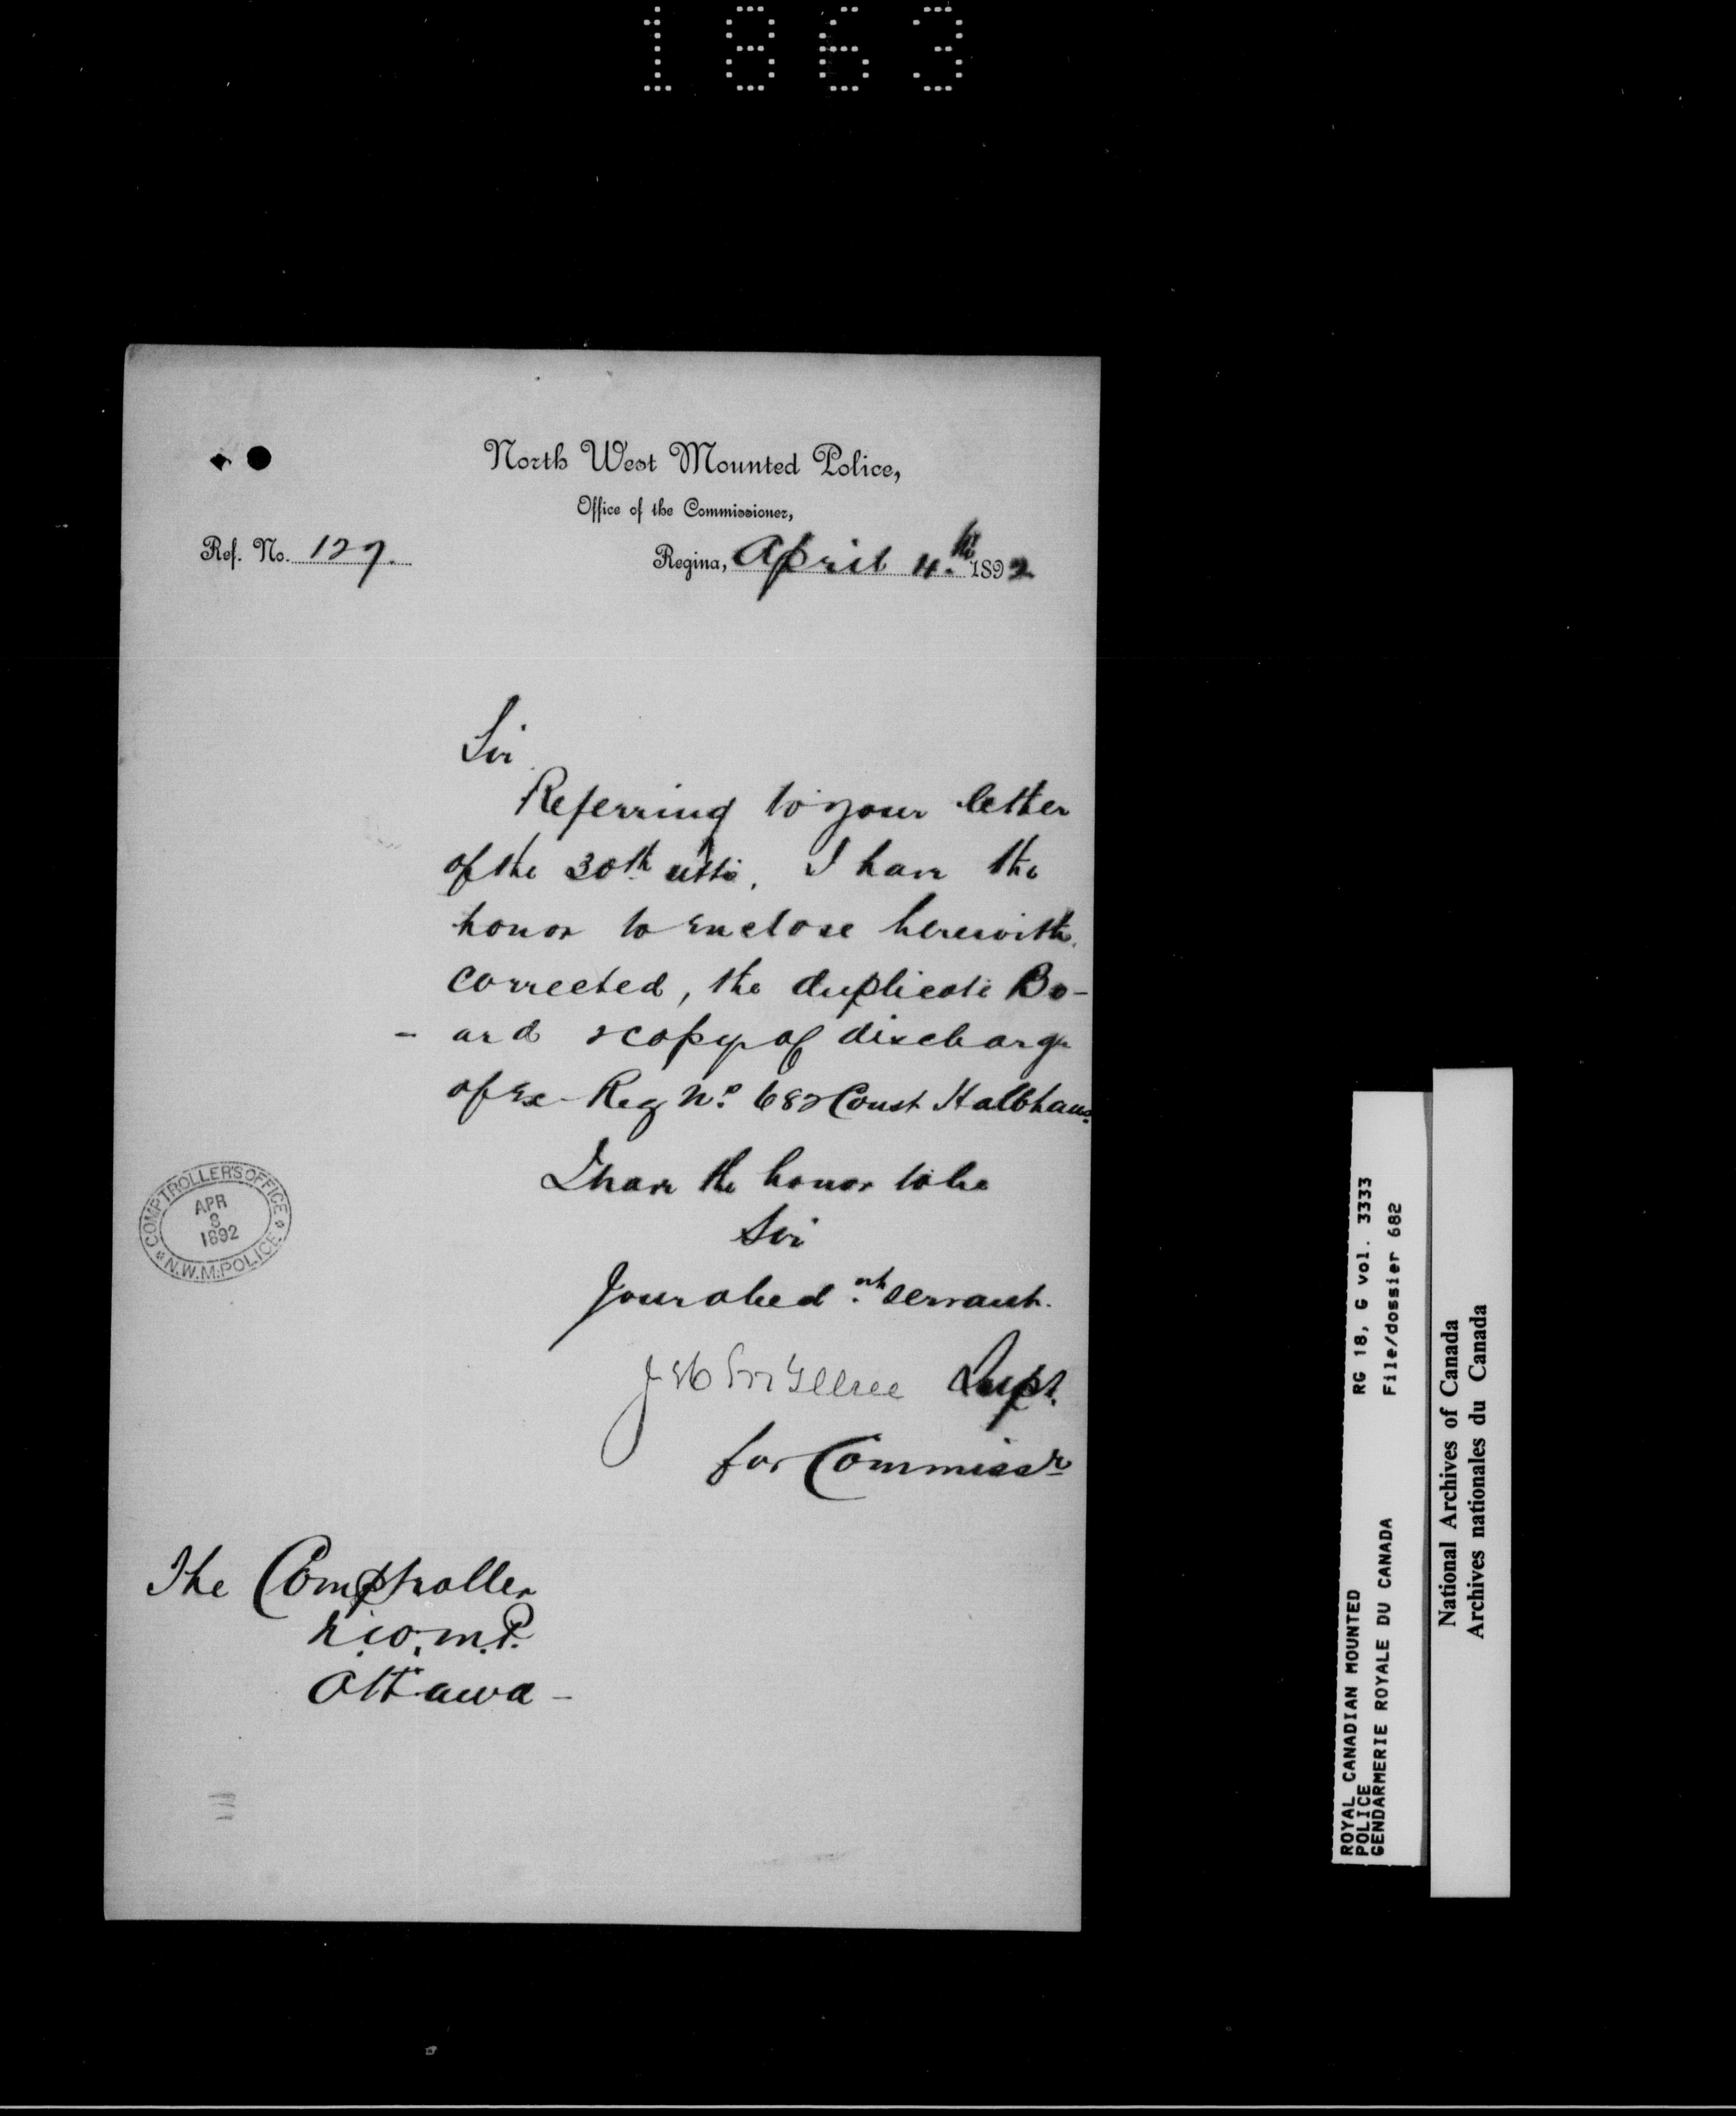 1863
North West Mounted Police,
Office of the Commissioner,
Ref. No. 127.
Regina, April 4.th 1892
Sir
Referring to your letter
of the 30th ulto, I have the
honor to enclose herewith
corrected, the duplicate Bo-
- ard & copy of discharge
of Ex-Reg No 682 Const Kalbhaus.
I have the honor to be
Sir
Your obed.nt servant.
Supt.
for Commissr
COMPTROLLER'S OFFICE
APR
8
1892
N.W.M. POLICE
The Comptroller
N.W.M.P.
Ottawa -
ROYAL CANADIAN MOUNTED
POLICE
GENDARMERIE ROYALE DU CANADA
RG 18, G vol. 3333
File/dossier 682
National Archives of Canada
Archives nationales du Canada